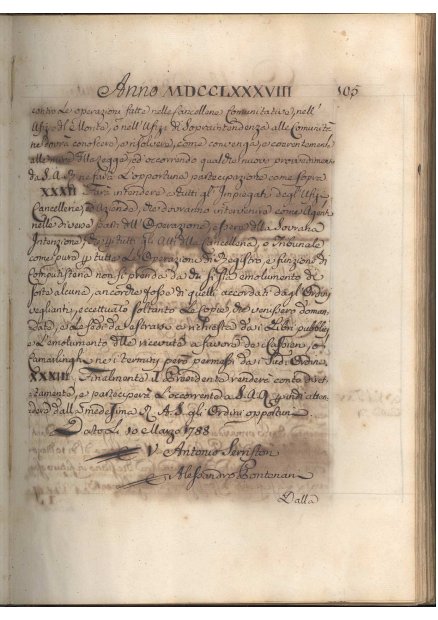 Anno MDCCLXXXVIII 105
contro Le operazioni fatte nelle Cancellerie Comunitative, nell'
Ufizio del Monte, o nell'Ufizi di Sopraintendenza alle Comunità
ne dovrà conoscere, e risolvere, come convenga, e coerentemente
alle mire della Legge, ed occorrendo qualche nuovo provvedimento
da S. A. R. ne farà L'opportuna partecipazione come sopra
XXXII Farà intendere a tutti gl'Impiegati degl'Ufizi
Cancellerie, o Aziende, che dovranno intervenire come Agenti
nelle diverse parti dell'Operazione essere della Sovrana
Intenzione, che per tutti gl'Atti della Cancelleria, o Tribunale
come pure per tutte Le Operazioni di Registro, e funzioni di
Computisteria non si prenda da essi emolumento di
sorte alcuna, ancorchè fosse di quelli accordati dagl'Ordini
veglianti, eccettuato soltanto Le Copie che venissero doman
date, e Le fedi da estrarsi a richiesta dai Libri pubblici
e L'emolumento delle ricevute a favore dei Cassieri, o
Camarlinghi nei termini però permessi dai suddetti Ordini
XXXIII Finalmente il Presidente renderà conto diret
tamente, e parteciperà L'occorrente a S. A. R. quindi atten
derà dalla medesima R. A. S. gli Ordini opportuni
Dato Li 10 Marzo 1788
V. Antonio Serristori
Alessandro Pontenani
Dalla